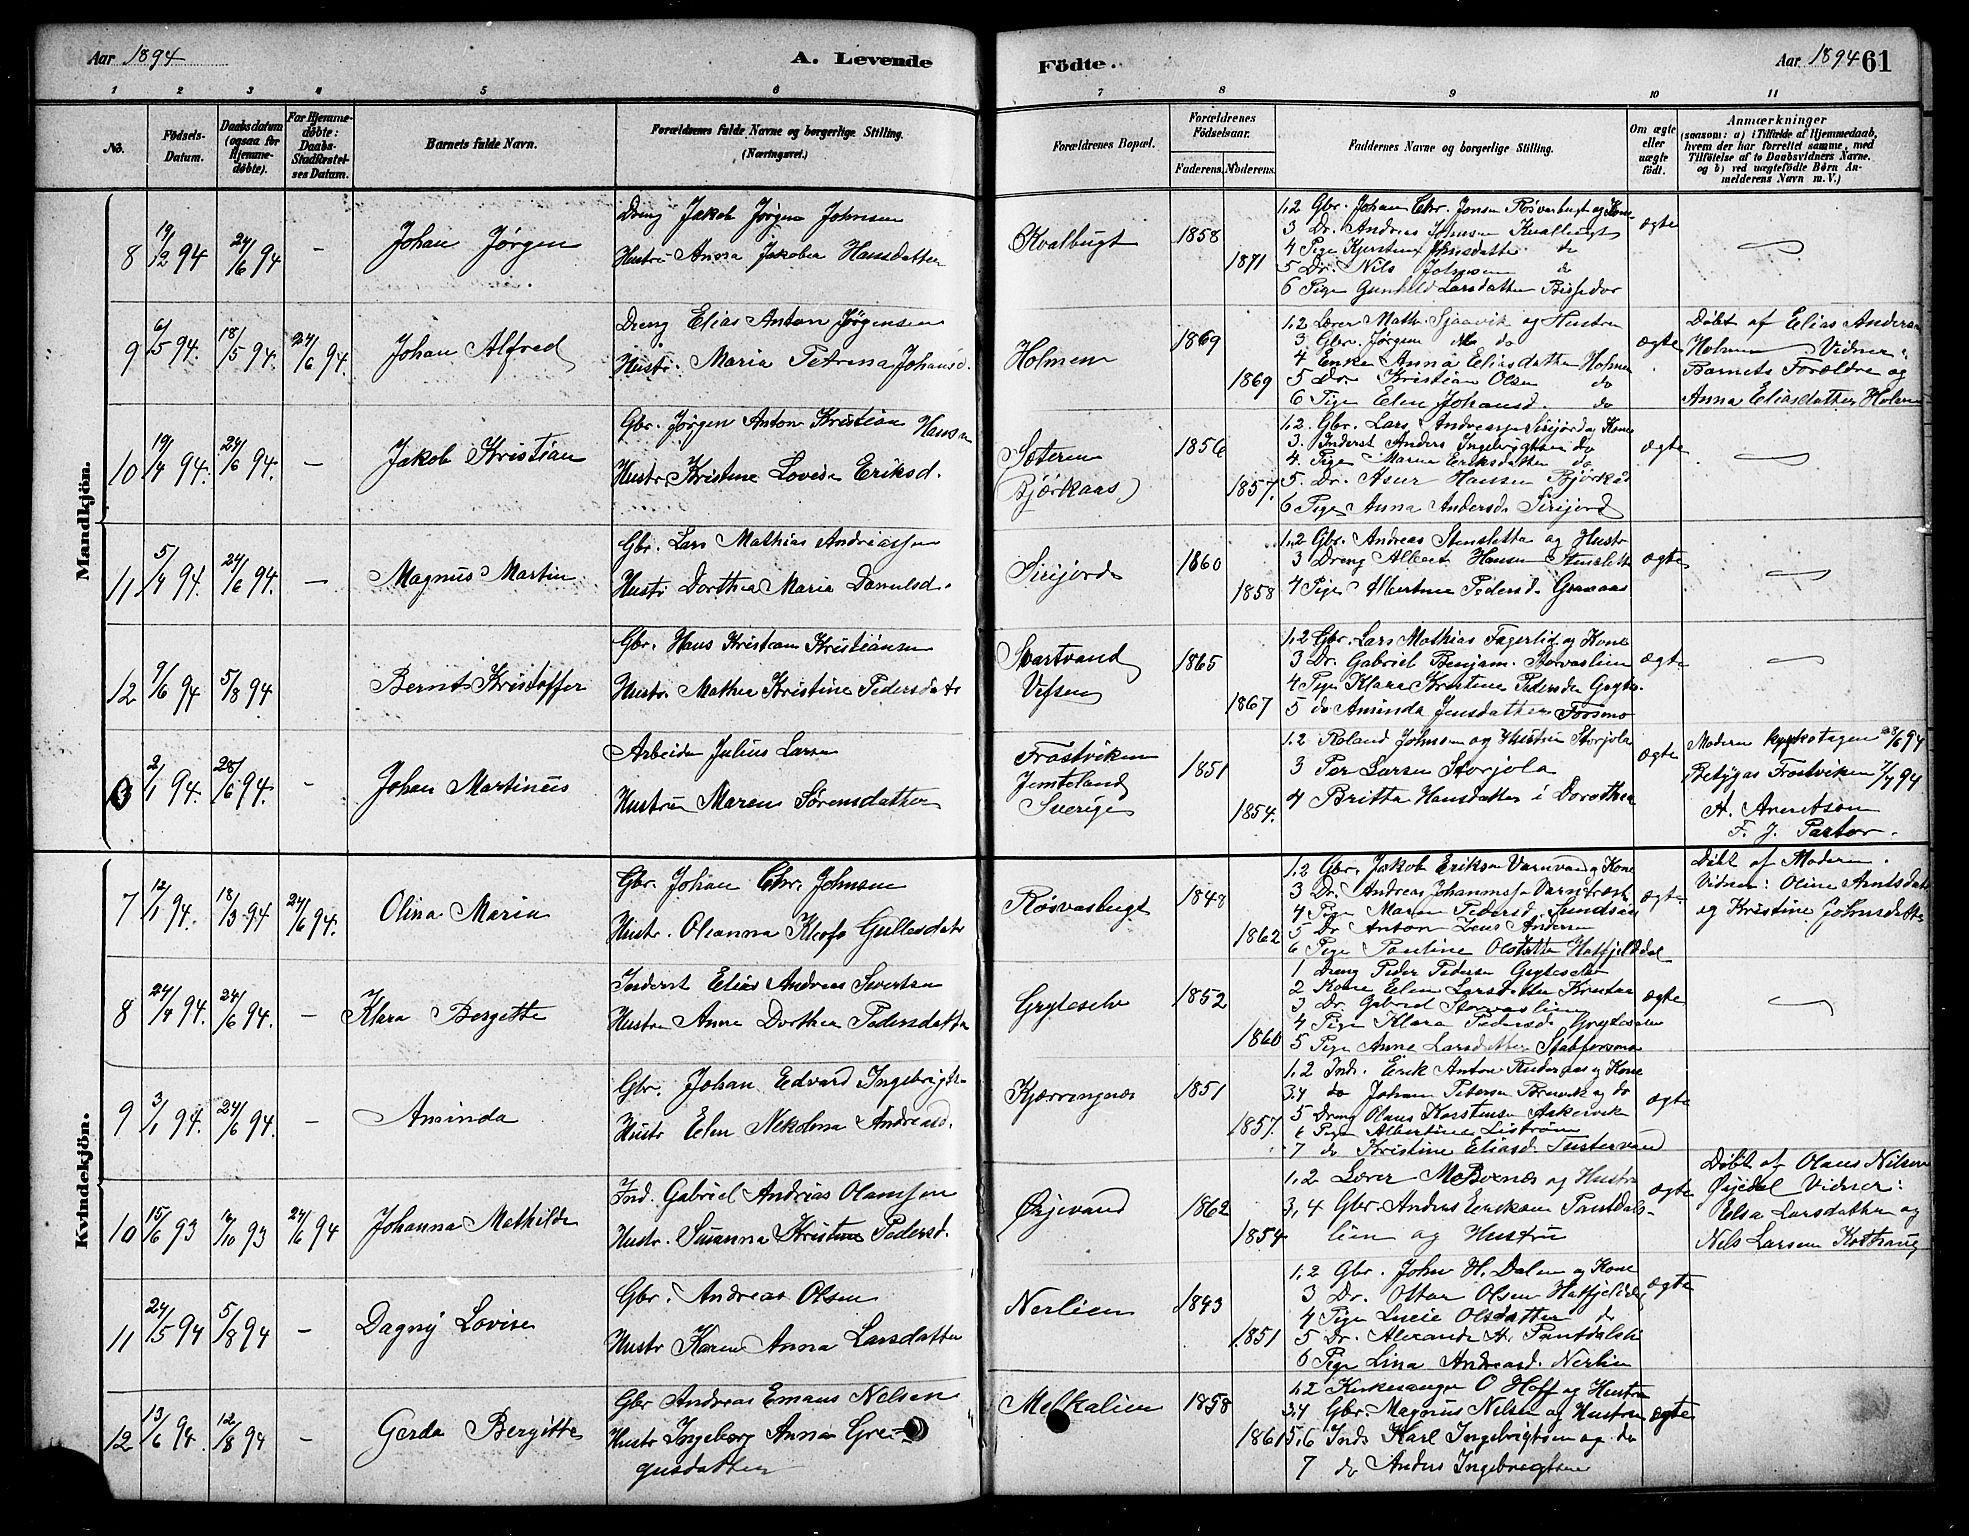 Aar 1894
A. Levende
Födte.
Aar 1894 61
1 2 3 4 5 6 7 8 9 10 11
No.
Födsels-
Datum.
Daabsdatum
(ogsaa for
Hjemme-
döbte).
For Hjemme-
döbte:
Daabs-
Stadfæstel-
ses Datum.
Barnets fulde Navn.
Forældrenes fulde Navne og borgerlige Stilling.
(Næringsvei.)
Forældrenes Bopæl.
Forældrenes
Födselsaar.
Faderens. Moderens.
Faddernes Navne og borgerlige Stilling.
Om ægte
eller
uægte
födt.
Anmærkninger
(saasom: a) i Tilfælde af Hjemmedaab,
hvem der har forrettet samme, med
Tilföielse af to Daabsvidners Navne,
og b) ved uægtefödte Börn An-
melderens Navn m. V.)
Mandkjön.
8 19/12 94 24/6 94 - Johan Jørgen
Dreng Jakob Jørgen Johnsen
Hustru Anna Jakobea Hansdatter
Kvalbugt 1858
1871
1,2 Gbr. Johan Chr. Jonsen Røsvasbugt og Kone
3 Dr. Andreas Johnsen Kvalbugt
4 Pige Kjerstine Johnsdatter do
5 Dr. Nils Johnsen do
6 Pige Gunhild Larsdatter
ægte
9 6/5 94. 18/5 94. 24/6 94. Johan Alfred
Dreng Elias Anton Jørgensen
Hustr. Maria Petrina Johansd.
Holmen 1869
1869
1,2 Lærer Math. Sjaavik og Hustru
3 Gbr. Jørgen do
4 Enke Anna Eliasdatter Holmen
5 Dr. Kristian Olsen do
6 Pige Elen Johansd. do
ægte
Døbt af Elias Andersen
Holmen Vidner:
Barnets Forældre og
Anna Eliasdatter Holmen
10 19/4 94. 24/6 94. - Jakob Kristian
Gbr. Jørgen Anton Kristian Hansen
Hustr. Kristine Lovise Eriksd.
Sæteren
(Bjørkaas)
1856
1857.
1,2. Gbr. Lars Andreassen Sirijord og Kone
3. Inderst Anders Ingebrigtsen do
4. Pige Maren Eriksdatter do
5. Dr. Asur Hansen Bjørkås
6 Pige Anna Andersd. Sirijord
ægte
11 5/4 94. 24/6 94. - Magnus Martin
Gbr. Lars Mathias Andreassen
Hustr Dorthea Maria Danielsd.
Sirijord 1860
1858
1,2 Gbr. Andreas Stensletta og Hustr
3 Dreng Albert Hansen Stensletta
4 Pige Albertine Pedersd. Granaas
ægte
12 9/6 94. 5/8 94 Bernt Kristoffer
Gbr. Hans Kristian Kristiansen
Hustr. Mathea Kristine Pedersdatr
Svartvand
Vefsen
1865
1867
1,2 Gbr. Lars Mathias Fagerlid og Kone
3 Dr. Gabriel Benjam. Storvaslien
4 Pige Klara Kristine Pedersd. Grytes.
5 do Aminda Jensdatter Forsmo
ægte
0 2/1 94. 28/6 94. - Johan Martinus
Arbeider Julius Larsen
Hustru Maren Sørensdatter
Frostviken
Jemteland
Sverige
1851
1854.
1,2 Roland Johnsen og Hustru Storjola
3 Per Larsen Storjola
4 Britta Hansdatter i Dorothea
ægte
Modern kyrkotagen 28/6 94
Betygas Frostviken 7/7 94
A. Arnetson
F. J. Pastor.
Kvindekjön.
7 12/1 94. 18/3 94 24/6 94. Olina Maria
Gbr. Johan Chr. Johnsen
Hustr. Olianna Gullesdatr
Røsvasbugt 1848
1862
1,2 Gbr. Jakob Eriksen Varnvand og Kone
3 Dr. Andreas
4 Pige Maren Pedersd. Sundsaas
5 Dr Anton Andersen
6 Pige Pauline Olsdatter Hatfjelddal
ægte
Døbt af Moderen.
Vidner: Oline Arntsdatr
og Kristine Johnsdatter
8 24/4 94. 24/6 94. - Klara Bergette
Inderst Elias Andreas Sivertsen
Hustru Anne Dorthea Pedersdatter
Gryteselv 1852
1860
1 Dreng Peder Pedersen Gryteselv
2 Kone Elen Larsdatter
3 Dr. Gabriel Storvaslien
4 Pige Klara Pedersd. Gryteselv
5 Pige Anne Larsdatter Stabforsmo
ægte
9 3/1 94. 24/6 94. - Aminda
Gbr. Johan Edvard Ingebrigts.
Hustr Elen Nekolina Andreasd.
Kjærringnes 1851
1857.
1,2 Ind. Erik Anton og Kone
3,4 do Johan Petersen og do
5 Dreng Olaus Karstensen Aakervik
6 Pige Albertine Listrøm
7 do Kristine Eliasd. Tustervand
ægte
10 15/6 93 /10 93 24/6 94 Johanna Mathilde
Ind. Gabriel Andrias Olaussen
Hustr. Susanna Kristine Pedersd.
Ørjevand 1862
1854
1,2 Lærer og Hustru
3,4 Gbr. Anders Eriksen Pantdals-
lien og Hustru
ægte
Døbt af Olaus Nilsen
Ørjedal Vidner:
Elsa Larsdatter og
Nels Larsen
11 24/5 94 5/8 94 - Dagny Lovise
Gbr. Andreas Olsen
Hustr Karen Anna Larsdatter
Nerlien 1843
1851
1,2 Gbr. John H. Dalen og Kone
3 Dr. Ottar Olsen Hatfjelddal
4 Pige Lucie Olsdatter do
5 Dr. Alexander A. Pantdalsli
6 Pige Lina Andreasd. Nerlien
ægte
12 13/6 94. 12/8 94 - Gerda Bergitte
Gbr Andreas Emaus Nelsen
Hustr Ingeborg Anna Gre-
gusdatter
Melkalien 1858
1861
1,2 Kirkesanger O Hoff og Hustru
3,4 Gbr. Magnus Nelsen og Hustru
5,6 Inds Karl Ingebrigtsen og do
7 do Anders Ingebregtsen
ægte